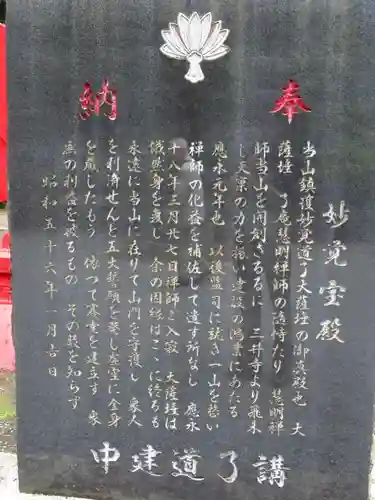 奉納
妙覚宝殿
当山鎮護妙覚道了大薩埵の御真殿也　大
薩埵　了庵慧明禅師の随侍たり　慧明禅
師当山を開創さるるに　三井寺より飛来
し天業の力を揮い建設の鴻業にあたる
應永元年也　以後監司に就き一山を慈い
禅師の化益を補佐して遺す所なし　應永
十八年三月廿七日禅師ご入寂　大薩埵は
慨然身を痩し　余の因縁はここに終るも
永遠に当山に在りて山門を守護し　衆人
を利済せんと五大誓願を発し虚空に全身
を蔵したもう　依つて寳奎を建立す　衆
無の利益を被るもの　その数を知らず
昭和五十六年一月吉日
講了道建中